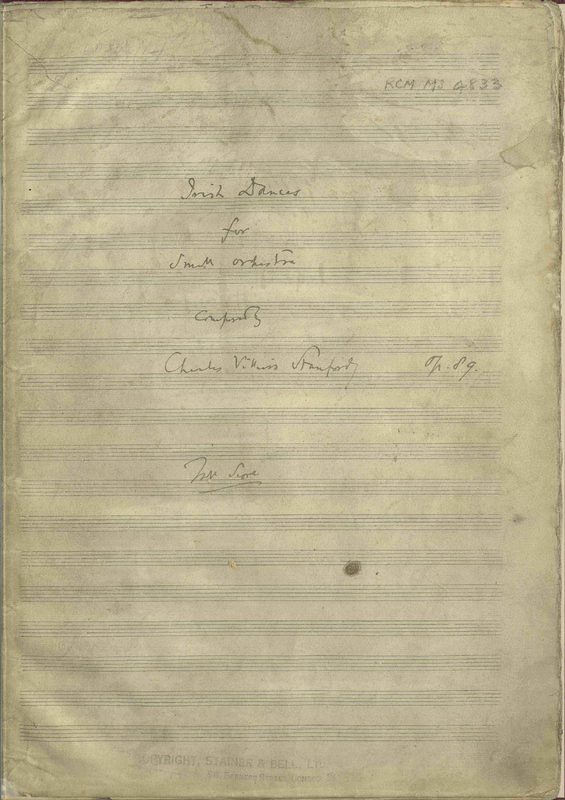 RCM MS 4833
Irish Dances
for
Small Orchestra
Composed by
Charles Villiers Stanford Op. 89.
Full Score
COPYRIGHT, STAINER & BELL, LTD.
58, Berners Street, London